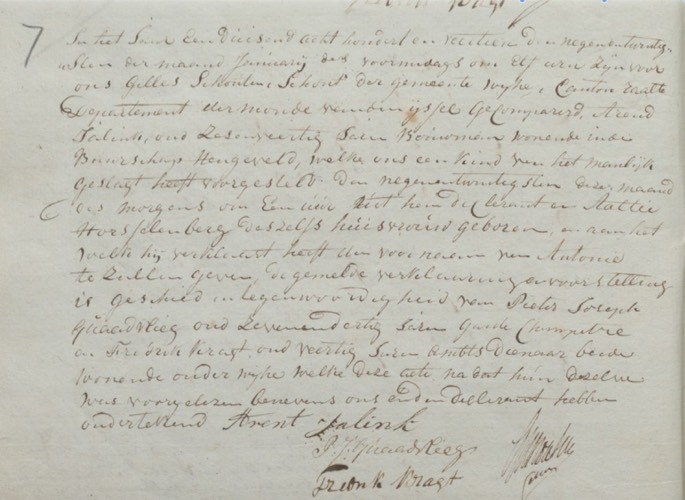 7
In het Jaar Een Duisend acht honderd en veertien den negenentwintig-
sten der maand Januarij des voormidags om Elf uren zijn voor
ons Gilles Schouten Schout der gemeente Wyhe, Canton Raalte
Departement der monden van den ijssel Gecompareerd, Arend
Jalink, oud Zesenveertig Jaren Bouwman wonende in de
Buurschap Hengeveld, welke ons een kind van het manlijk
geslagt heeft voorgesteld den negenentwintigsten dezer maand
des morgens om Een uur uit hem declarant en Aaltie
Horsselenberg deszelfs huisvrouw geboren, en aan het
welk hij verklaart heeft den voornaem van Antonie
te Zullen geven, de gemelde verklaaring en voorstelling
is geschied in tegenwoordigheid van Pieter Joseph
Quaadvleeg oud Zevenendertig Jaren Garde Champetre
en Fredrik Kragt, oud veertig Jaren Ambts Dienaar beide
wonende onder Wyhe welke deze acte na dat hun dezelve
was voorgelezen benevens ons en den declarant hebben
ondertekend Arent Jalink
P. J. Quaadvleeg
Fredrik Kragt